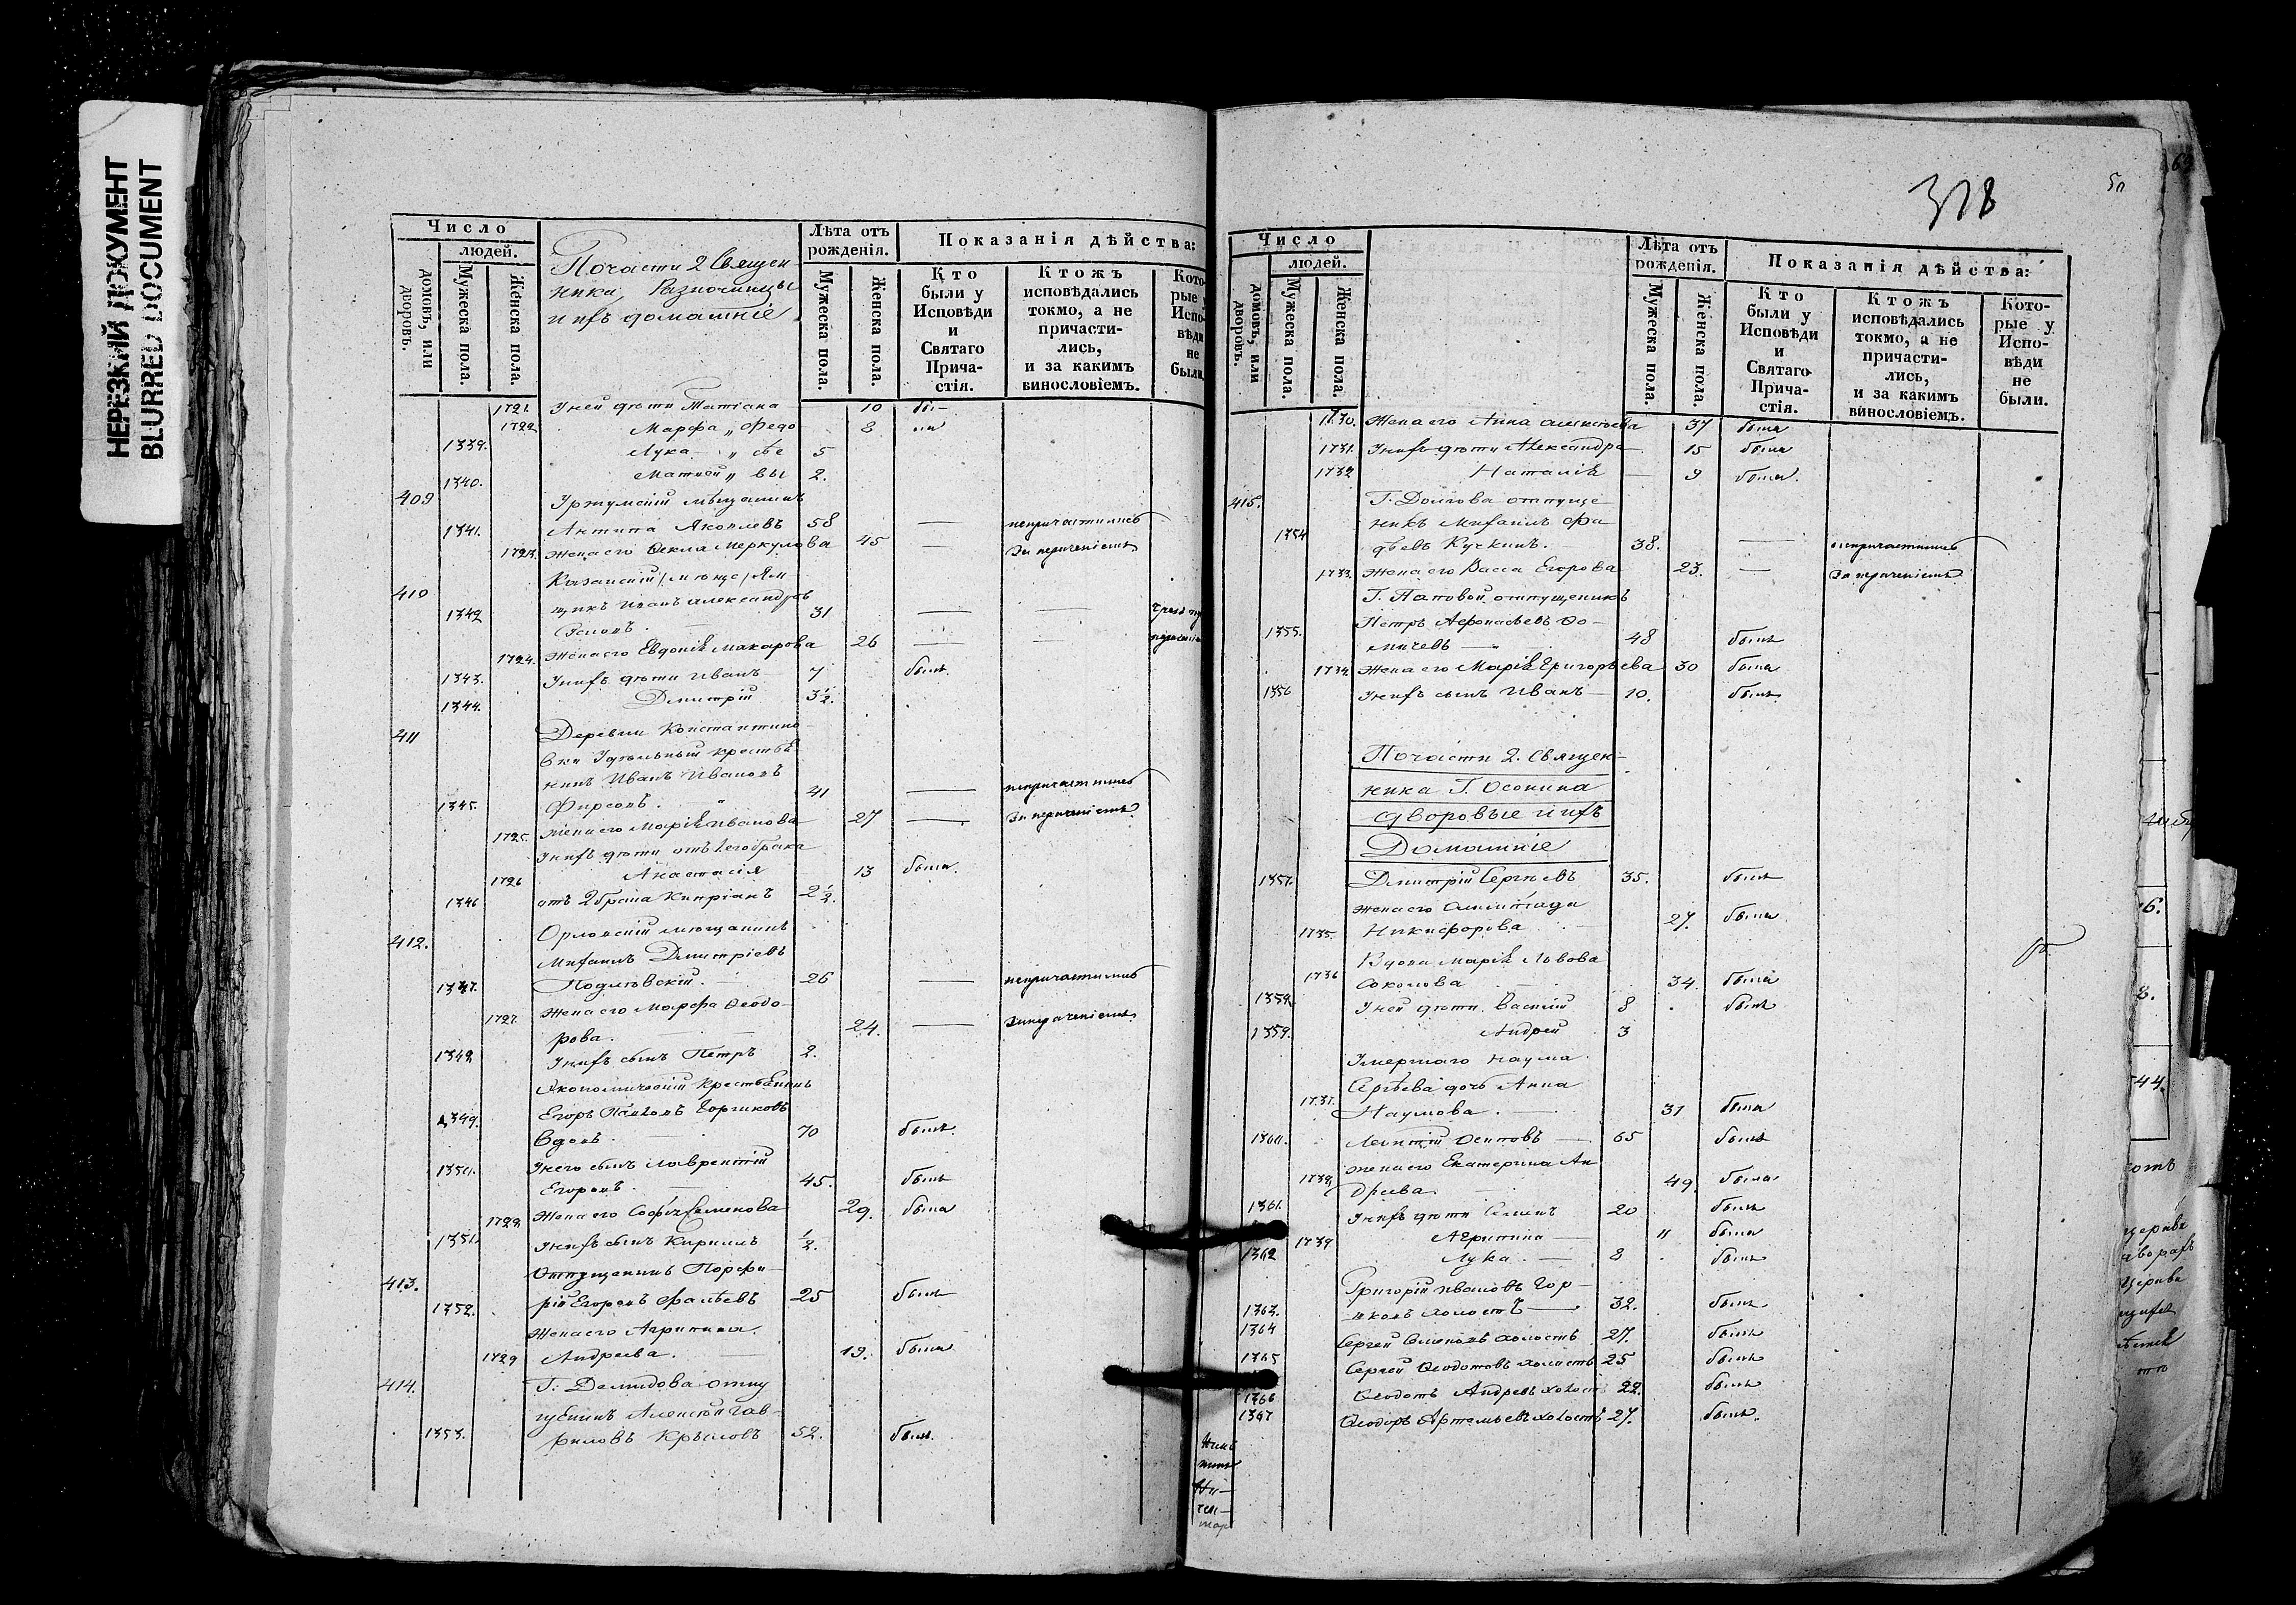 НЕРЕЗКИЙ ДОКУМЕНТ
BLURRED DOCUMENT
Число
людей.
домовъ, или дворовъ.
Мужеска пола.
Женска пола.
По части 2 Священ-
ника, Разночинцы
и ихъ домашніе
Лѣта отъ рожденія.
Мужеска пола.
Женска пола.
Показанія дѣйства:
Кто были у Исповѣди и Святаго Прича-стія.
Ктожъ исповѣдались токмо, а не причасти-лись, и за какимъ винословіемъ.
Кото-рые у Испо-вѣди не были.
1721. У ней дѣти Татіана 10
1722 Марфа 8
1339. Лука 5
1340. Матвѣй 2.
409 Уржумскій мѣщанинъ
1341. Антипа Яковлевъ 58 — непричастились
1723. Жена его Ѳекла Меркулова 45 — за
410 Казанскій
1342 Иванъ Александровъ 31 — —
1724. Жена его Евдокія Макарова 26 — —
1343. У нихъ дѣти Иванъ 7 былъ.
1344. Димитрій 3½.
411 Деревни Константино-
вки Удѣльный крестья-
нинъ Иванъ Ивановъ
1345. Фирсовъ. 41 — непричастились
1725. Жена его Марія Иванова 27 — за
У нихъ дѣти отъ 1го брака
1726 Анастасія 13 была.
1346 отъ 2 брака Кипріанъ 2½.
412. Орловскій мѣщанинъ
Михаилъ Димитріевъ
1347. 26 — непричастились
1727. Жена его Марфа Ѳеодо-
рова. 24. —
1348 У нихъ сынъ Петръ 2.
Экономическій крестьянинъ
1349. Егоръ Павловъ Горшковъ
вдовъ. 70 былъ.
1350. У него сынъ Лаврентій
Егоровъ. 45. былъ
1728. Жена его Софія Семенова 29. была
1351. У нихъ сынъ Кириллъ ½.
413. Отпущенникъ Порфи-
1352. рій Егоровъ Фалѣевъ 25 былъ
Жена его Агрипина
1729 Андреева. 19. была
414. Г: Демидова отпу
Алексѣй Гав-
1353. риловъ Крыловъ 52. былъ.
318
Число
людей.
домовъ, или дворовъ.
Мужеска пола.
Женска пола.
Лѣта отъ рожденія.
Мужеска пола.
Женска пола.
Показанія дѣйства:
Кто были у Исповѣди и Святаго Прича-стія.
Ктожъ исповѣдались токмо, а не причасти-лись, и за какимъ винословіемъ.
Кото-рые у Испо-вѣди не были.
1730. Жена его Анна Алексѣева 37 была
1731. У нихъ дѣти Александра 15 была
1732 Наталія — 9 была.
415. Г. Долгова отпуще-
никъ Михаилъ Фа-
1354 дѣевъ Кускинъ. 38. — непричастились
1733. Жена его Васса Егорова 23. — за
Г. Паповой отпущеникъ
1355. Петръ Аѳонасьевъ Ѳо-
мичевъ — 48 былъ
1734. Жена его Марія Григорьева 30 была
1356 У нихъ сынъ Иванъ — 10. былъ
По части 2. Священ-
ника Г. Осокина
дворовые и ихъ
Домашніе
1357. Димитрій Сергѣевъ 35. былъ
Жена его Олимпіада
1735. Никифорова 27. была
1736 Вдова Марія Львова
Соколова 34. была
1358. У ней дѣти Василій 8 былъ
1359. Андрей 3
Умершаго Наума
Сергѣева дочь Анна
1737. Наумова. — 31 была
1360. Леонтій Осиповъ — 65 былъ
Жена его Екатерина Ан
1738. дреева. 49. была
1361. У нихъ дѣти Семенъ 20 былъ
1739 Агрипина — 11 была
1362 Лука. — 8 былъ
Григорій Ивановъ Гор-
1363. шковъ холостъ — 32. былъ
1364 Сергѣй Семеновъ холостъ 27. былъ
1365 Сергѣй Ѳеодотовъ холостъ 25 былъ
1366 Ѳеодотъ Андреевъ холост 22. былъ
1367 Ѳеодоръ Артемьевъ холостъ 27. былъ.